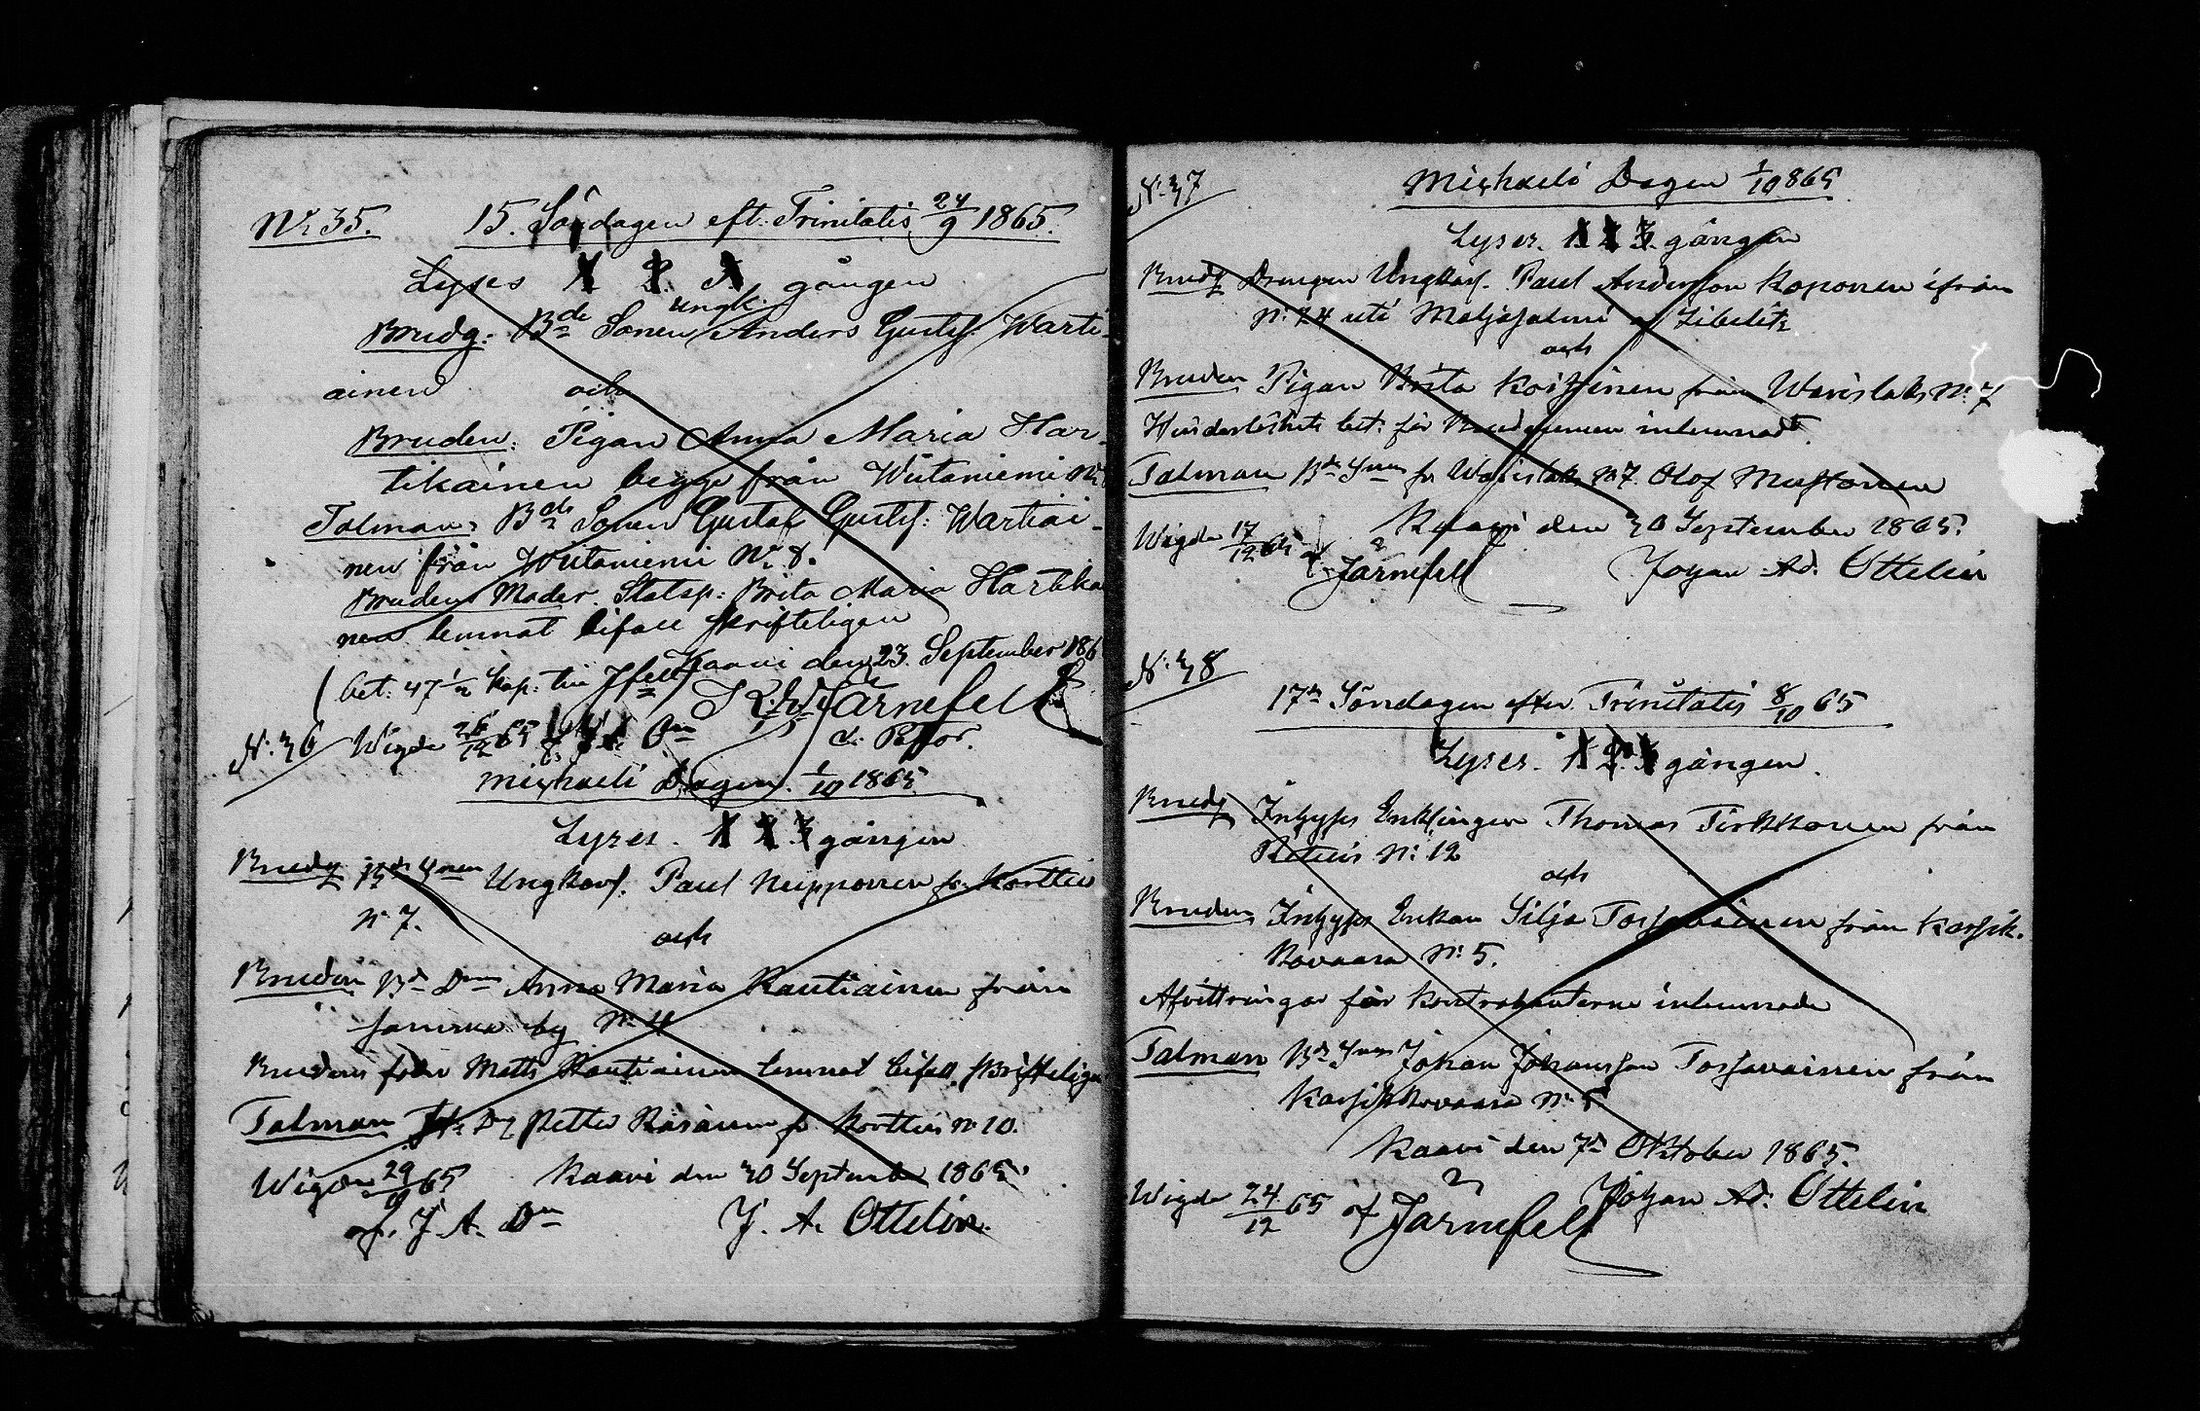 Nr 35. 15. Söndagen eft. Trinitatis 24/9 1865.
Lyses 1. 2. 3. gången
Brudg: Bde Sonen Ungk. Anders Gustf. Warti-
ainen och
Bruden: Pigan Anna Maria Har-
tikainen begge från Wiitaniemi Nr
Talman: Bde Sonen Gustaf Gustf: Wartiai-
nen från Wiitaniemi Nr 8.
Brudens Moder Statsp: Brita Maria Hartika
nen lemnat bifall skrifteligen
Kaavi den 23. September 186
(bet: 47 1/2 kop: till Jfelt) Järnefelt
v. Pastor.
N: 36 Wigde 26/12 65
Michaeli Dagen 1/10 1865.
Lyses. 1 2 3 gången
Brudg Bde Sonen Ungkarl. Paul Neipponen fr. Kortteis
N: 7.
och
Bruden Bd Dr Anna Maria Rautiainen från
samma by N: 4
Brudens fader Matts Rautiainen lemnat bifall skrifteligen
Talman Petter Räsänen fr. Kortteis N: 10.
Wigde 29/ 65 Kaavi den 30 September 1865.
af. J. A. On J. A. Ottelin.
N: 37 Michaeli Dagen 1/10 865
Lyses. 1 2 3. gången
Brudg Drengen Ungkarl. Paul Andersson Koponen ifrån
N: 24 uti Maljasalmi af Libelits
och
Bruden Pigan Brita Koistinen från Warislaks N: 7
Hinderlöshets bet: för Brudgummen inlemnadt.
Talman Bde Sonen fr Warislaks N: 7. Olof Mustonen
Kaavi den 30 September 1865.
Wigde 17/12 65 af Järnefelt Johan Ad. Ottelin
N: 38
17de Söndagen efter Trinitatis 8/10 65
Lyses. 1 2 3 gången.
Brudg Inhyses Enklingen Thomas Tirkkonen från
Retuis N: 12
och
Bruden Inhyses Enkan Silja Tossavainen från Karsik-
kovaara N: 5.
Afvittringar för kontrahenterne inlemnade
Talman Bde Sonen Johan Johansson Tossavainen från
Karsikkovaara N: 5
Kaavi den 7de Oktober 1865.
Wigde 24/12 65 af Järnefelt Johan Ad: Ottelin